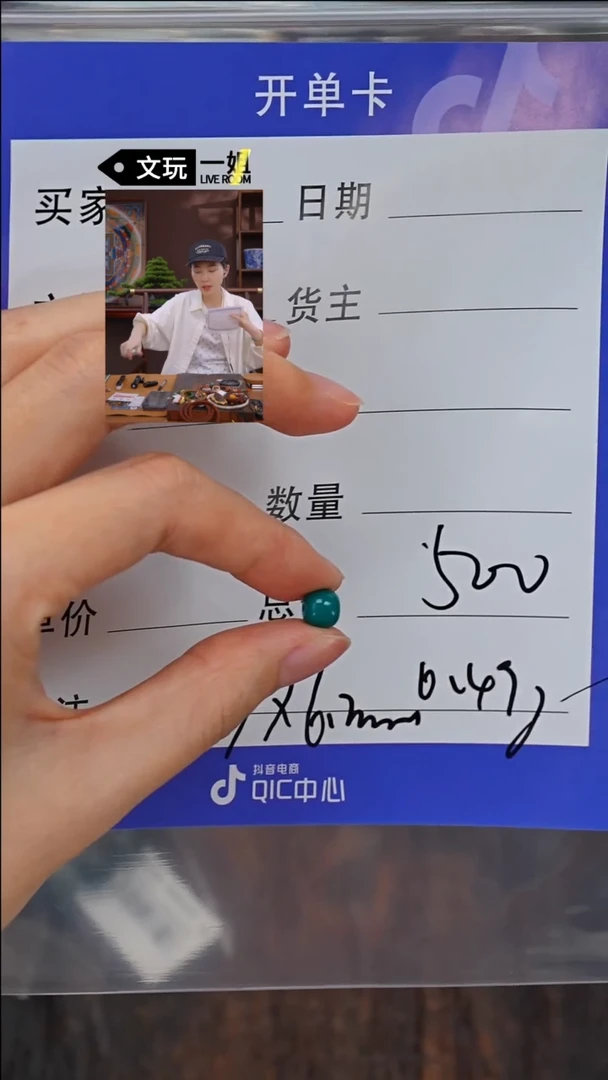 开单卡
文玩 一姐
LIVE ROOM
买家 日期
货主
数量
500
单价 总
x6.2mm 0.49g
抖音电商
QIC中心